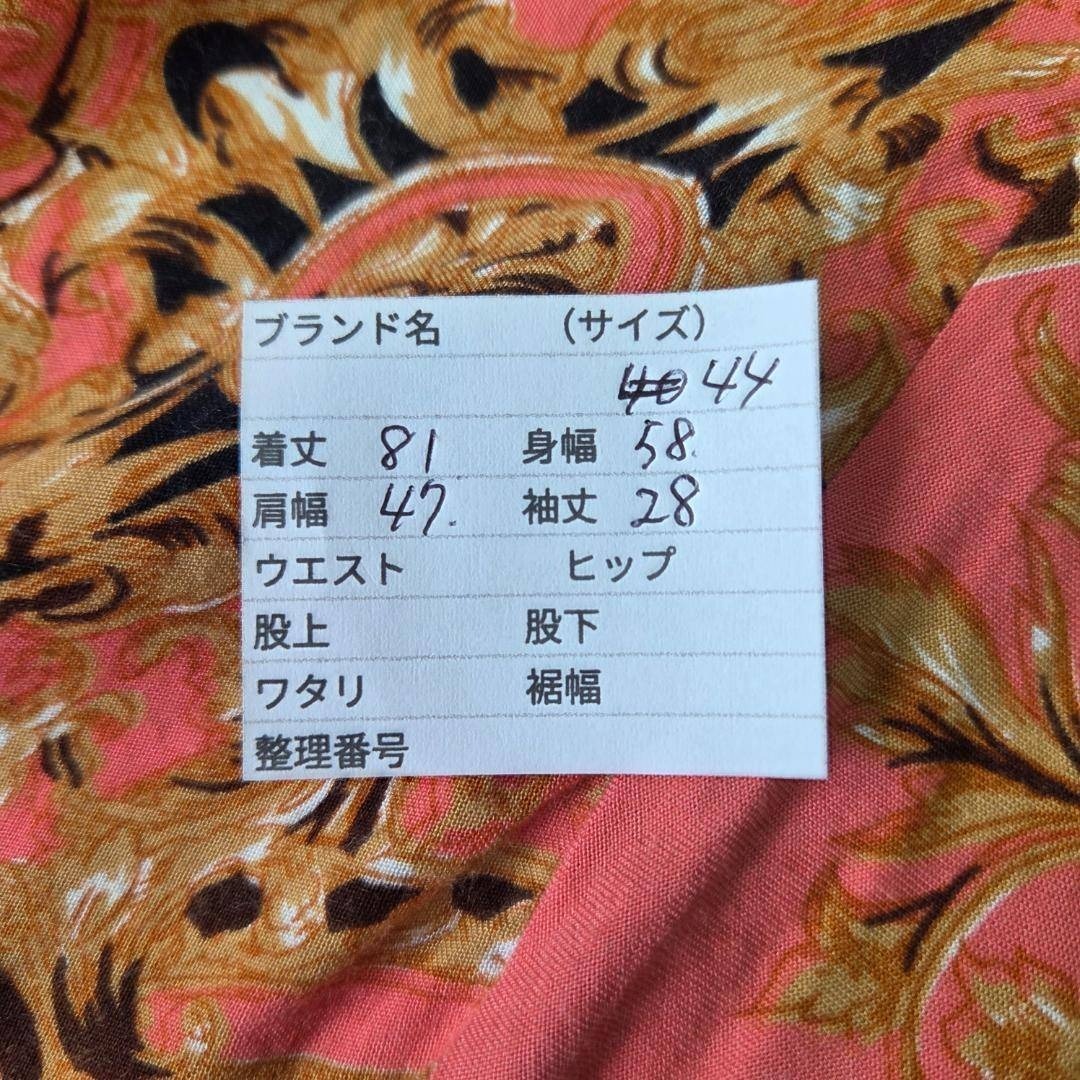 ブランド名 （サイズ）
40 44
着丈 81 身幅 58.
肩幅 47. 袖丈 28
ウエスト ヒップ
股上 股下
ワタリ 裾幅
整理番号